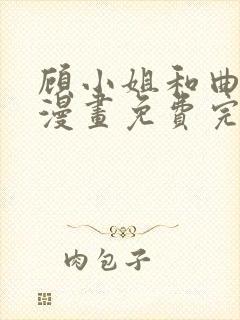 顾小姐和曲
漫畫免費完
肉包子